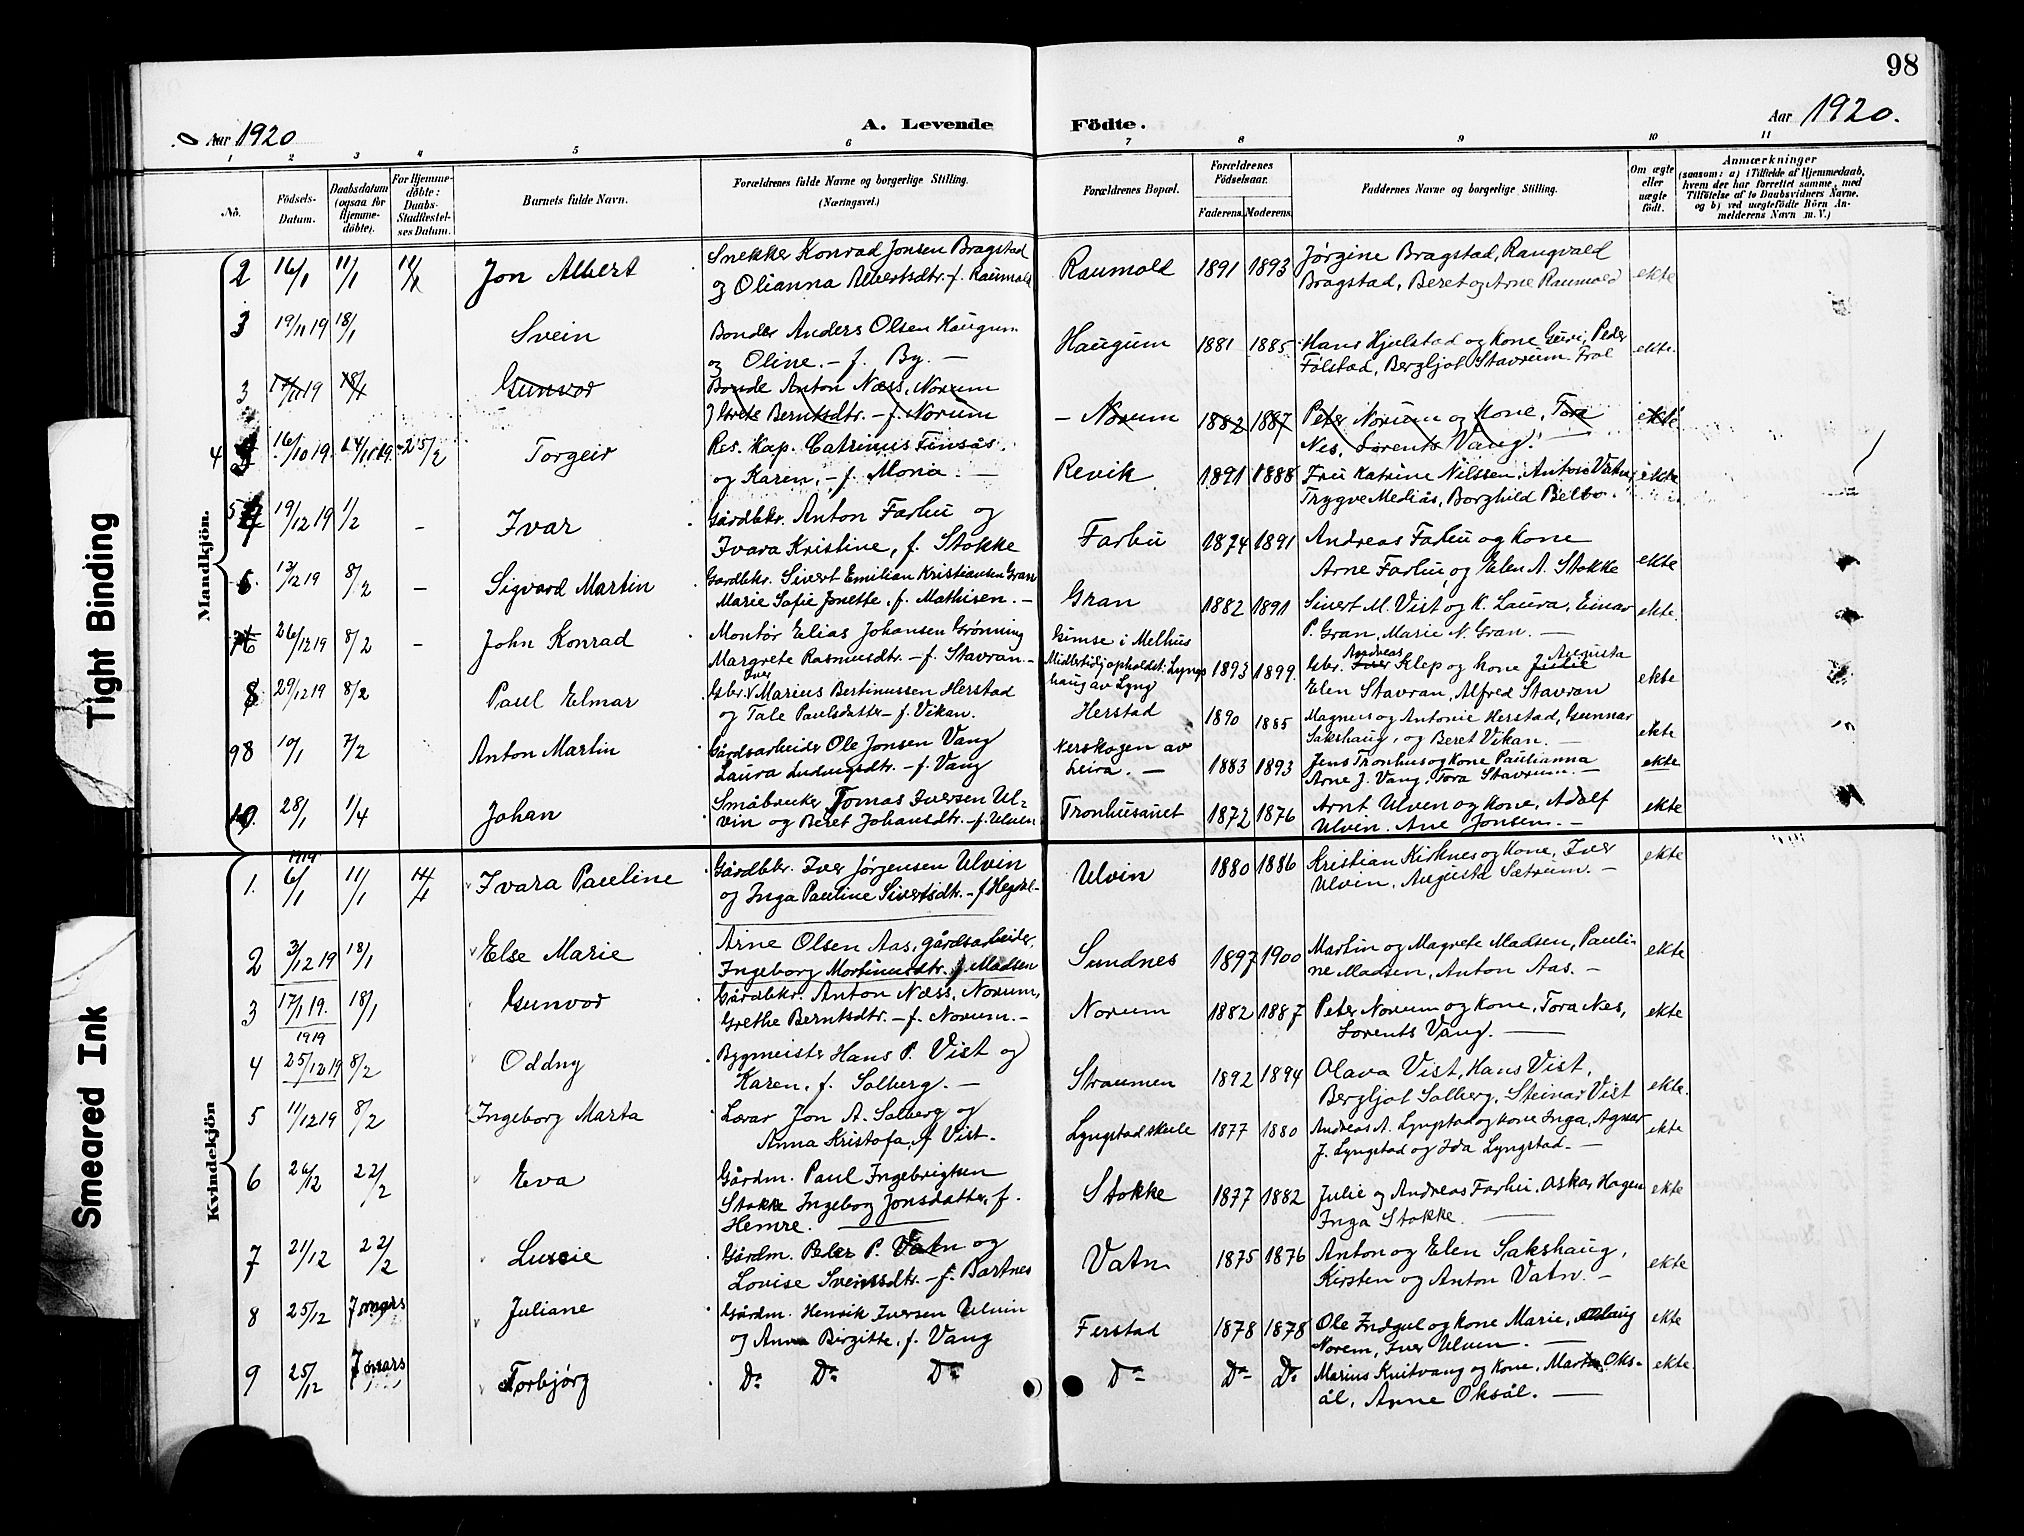 98
Aar 1920
A. Levende Födte.
Aar 1920.
1 2 3 4 5 6 7 8 9 10 11
Nö.
Födsels-Datum.
Daabsdatum (ogsaa for Hjemmedöbte).
For Hjemmedöbte: Daabs-Stadfæstelses Datum.
Barnets fulde Navn.
Forældrenes fulde Navne og borgerlige Stilling.
(Næringsvei.)
Forældrenes Bopæl.
Forældrenes Födselsaar.
Faderens. Moderens.
Faddernes Navne og borgerlige Stilling.
Om ægte eller uægte födt.
Anmærkninger
(saasom: a) i Tilfælde af Hjemmedaab, hvem der har forrettet samme, med Tilföielse af to Daabsvidners Navne. og b) ved uægtefödte Börn Anmelderens Navn m. V.)
Mandkjön.
2 16/1 11/1 11/1 Jon Albert Snekker Konrad Jonsen Bragstad Raumold 1891 1893 Jørgine Bragstad, Rangvald ekte
og Olianna Albertsdtr. - f. Raumold Bragstad, Beret og Arne Raumold
3 19/11 19 18/1 Svein Bonder Anders Olsen Haugum Haugum 1881 1885 Hans Hjulstad og Kone Guri, Peder ekte.
og Oline. - f. By. - Følstad, Bergljot Stavrum Frol
3 17/11 19 18/1 Gunvor Bonde Anton Næss, Norum - Norum 1882 1887 Peter Norum og Kone, Tora ekte
Grete Berntsdtr. - f. Norum Nes, Lorents Vang.
4 16/10 19. 24/10 19. 25/2 Torgeir Res. Kap. Catrinus Finsås. Revik 1891 1888 Fru Katrine Nilssen, Anton Vatn, ekte
og Karen, - f. Mona. - Trygve Mediås, Borghild Belbo.
5 19/12 19 1/2 - Ivar Gårdbkr. Anton Farbu og Farbu 1874 1891 Andreas Farbu og Kone ekte
Ivara Kristine, f. Stokke Arne Farbu, og Elen A. Stokke
6. 13/12 19 8/2 - Sigvard Martin Gardbkr. Sivert Emilian Kristiansen Gran Gran 1882 1891 Sivert M. Vist og K. Laura, Einar ekte.
Marie Sofie Jonette, f. Mathisen. - P. Gran, Marie N. Gran. -
7 26/12 19 8/2 - John Konrad Montør Elias Johansen Grønning Gimse i Melhus 1893 1899. Gbr. Andreas Klep og kone Augusta ekte
Margrete Rasmusdtr. - f. Stavran. - Midlertidi opholdst: Lyng- Elen Stavran, Alfred Stavran
haug av Lyng
8 29/12 19 8/2 Paul Elmar Gbr. Iver Marius Bertinussen Herstad Herstad 1890 1885 Magnus og Antonie Herstad, Gunnar ekte
og Tale Paulsdatter - f. Vikan. Sakshaug, og Beret Vikan. -
9 10/1 7/2 Anton Martin Gårdsarbeider Ole Jonsen Vang Nerskogen av 1883 1893 Jens Tronhus og Kone Paulianna ekte
Laura Ludvigsdtr. - f. Vang Leira. - Arne J. Vang, Tora Stavrum. -
10. 28/1 1/4 Johan Småbruker Tomas Iversen Ul- Tronhusaunet 1872 1876 Arnt Ulven og Kone, Adolf ekte
vin og Beret Johansdtr. - f. Ulven Ulvin. Ane Jonsen. -
Kvindekjön
1. 1919 6/1 11/1 11/4 Ivara Pauline Gårdbkr. Iver Jørgensen Ulvin Ulvin 1880 1886 Kristian Kirknes og Kone, Iver ekte
og Inga Pauline Sivertsdtr. - f. Ulvin, Augusta Sætrum. -
2 3/12 19 18/1 Else Marie Arne Olsen Aas, gårdsarbeider, Sundnes 1897 1900 Martin og Magrete Madsen, Pauli- ekte
Ingeborg Mortinusdtr. f. Madsen ne Madsen, Anton Aas. -
3 17/1 19. 1919 18/1 Gunvor Gårdbkr. Anton Næss, Norum, Norum 1882 1887 Peter Norum og Kone, Tora Nes, ekte
Grethe Berntsdtr. - f. Norum. - Lorents Vang. -
4 25/12 19 8/2 Oddny Bygmeister Hans P. Vist og Straumen 1892 1894 Olava Vist, Hans Vist, ekte.
Karen, f. Solberg. - Bergljot Solberg, Steinar Vist
5 11/12 19 8/2 Ingeborg Marta Lærar Jon A. Solberg og Lyngstad skule 1877 1880 Andreas A. Lyngstad og Kone Inga, Agnar ekte
Anna Kristofa, f. Vist. J. Lyngstad og Ida Lyngstad. -
6 26/12 22/2 Eva Gårdm. Paul Ingebrigtsen Stokke 1877 1882 Julie og Andreas Farbu, Oskar Hagen ekte
Stokke Ingeborg Jonsdatter, f. Inga Stokke.
Hemre. -
7 21/12 22/2 Lussie Gårdm. Peter P. Vatn og Vatn 1875 1876 Anton og Elen Sakshaug, ekte
Lovise Svensdtr. - f. Bartnes Kirsten og Anton Vatn. -
8 25/12 7 mars Juliane Gårdm. Henrik Iversen Ulvin Ferstad 1878 1878 Ole Indgul og Kone Marie, Aslaug ekte
og Anna Birgitte, f. Vang Norem, Iver Ulven. -
9 25/12 7 mars Torbjørg Do Do Do Do Do Do Marius Kvitvang og Kone, Marta Oks- ekte
ål, Anne Oksål. -
Tight Binding
Smeared Ink